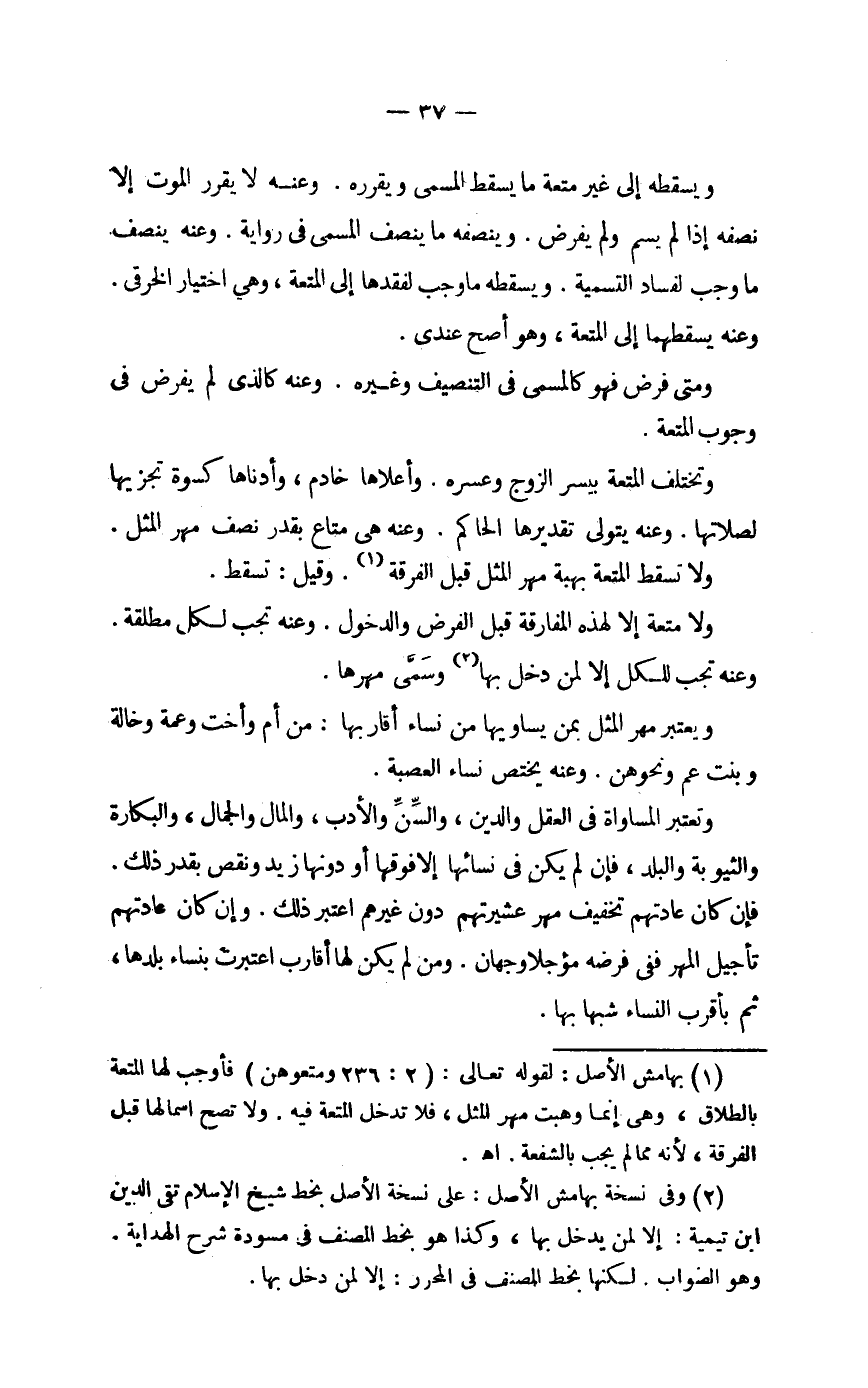 — ٣٧ —
ويسقطه إلى غير متعة ما يسقط المسمى ويقرره . وعنه لا يقرر الموت إلا
نصفه إذا لم يسم ولم يفرض . وينصفه ما ينصف المسمى فى رواية . وعنه ينصف
ما وجب لفساد التسمية . ويسقطه ماوجب لفقدها إلى المتعة ، وهي اختيار الخرقى .
وعنه يسقطهما إلى المتعة ، وهو أصح عندى .
ومتى فرض فهو كالمسمى فى التنصيف وغيره . وعنه كالذى لم يفرض فى
وجوب المتعة .
وتختلف المتعة بيسر الزوج وعسره . وأعلاها خادم ، وأدناها كسوة تجزيها
لصلاتها . وعنه يتولى تقديرها الحاكم . وعنه هى متاع بقدر نصف مهر المثل .
ولا تسقط المتعة بهبة مهر المثل قبل الفرقة (١) . وقيل : تسقط .
ولا متعة إلا لهذه المفارقة قبل الفرض والدخول . وعنه تجب لكل مطلقة .
وعنه تجب للكل إلا لمن دخل بها(٢) وسَمَّى مهرها .
ويعتبر مهر المثل بمن يساويها من نساء أقاربها : من أم وأخت وعمة وخالة
وبنت عم ونحوهن . وعنه يختص نساء العصبة .
وتعتبر المساواة فى العقل والدين ، والسِّنِّ والأدب ، والمال والجمال ، والبكارة
والثيوبة والبلد ، فإن لم يكن فى نسائها إلافوقها أو دونها زيد ونقص بقدر ذلك .
فإن كان عادتهم تخفيف مهر عشيرتهم دون غيرهم اعتبر ذلك . وإن كان عادتهم
تأجيل المهر ففى فرضه مؤجلاوجهان . ومن لم يكن لها أقارب اعتبرت بنساء بلدها ،
ثم بأقرب النساء شبها بها .
(١) بهامش الأصل : لقوله تعالى : ( ٢ : ٢٣٦ ومتعوهن ) فأوجب لها المتعة
بالطلاق ، وهى إنما وهبت مهر المثل ، فلا تدخل المتعة فيه . ولا تصح اسمالها قبل
الفرقة ، لأنه ممالم يجب بالشفعة . اه .
(٢) وفى نسخة بهامش الأصل : على نسخة الأصل بخط شيخ الإسلام تقى الدين
ابن تيمية : إلا لمن يدخل بها ، وكذا هو بخط المصنف فى مسودة شرح الهداية .
وهو الصواب . لكنها بخط المصنف فى المحرر : إلا لمن دخل بها .